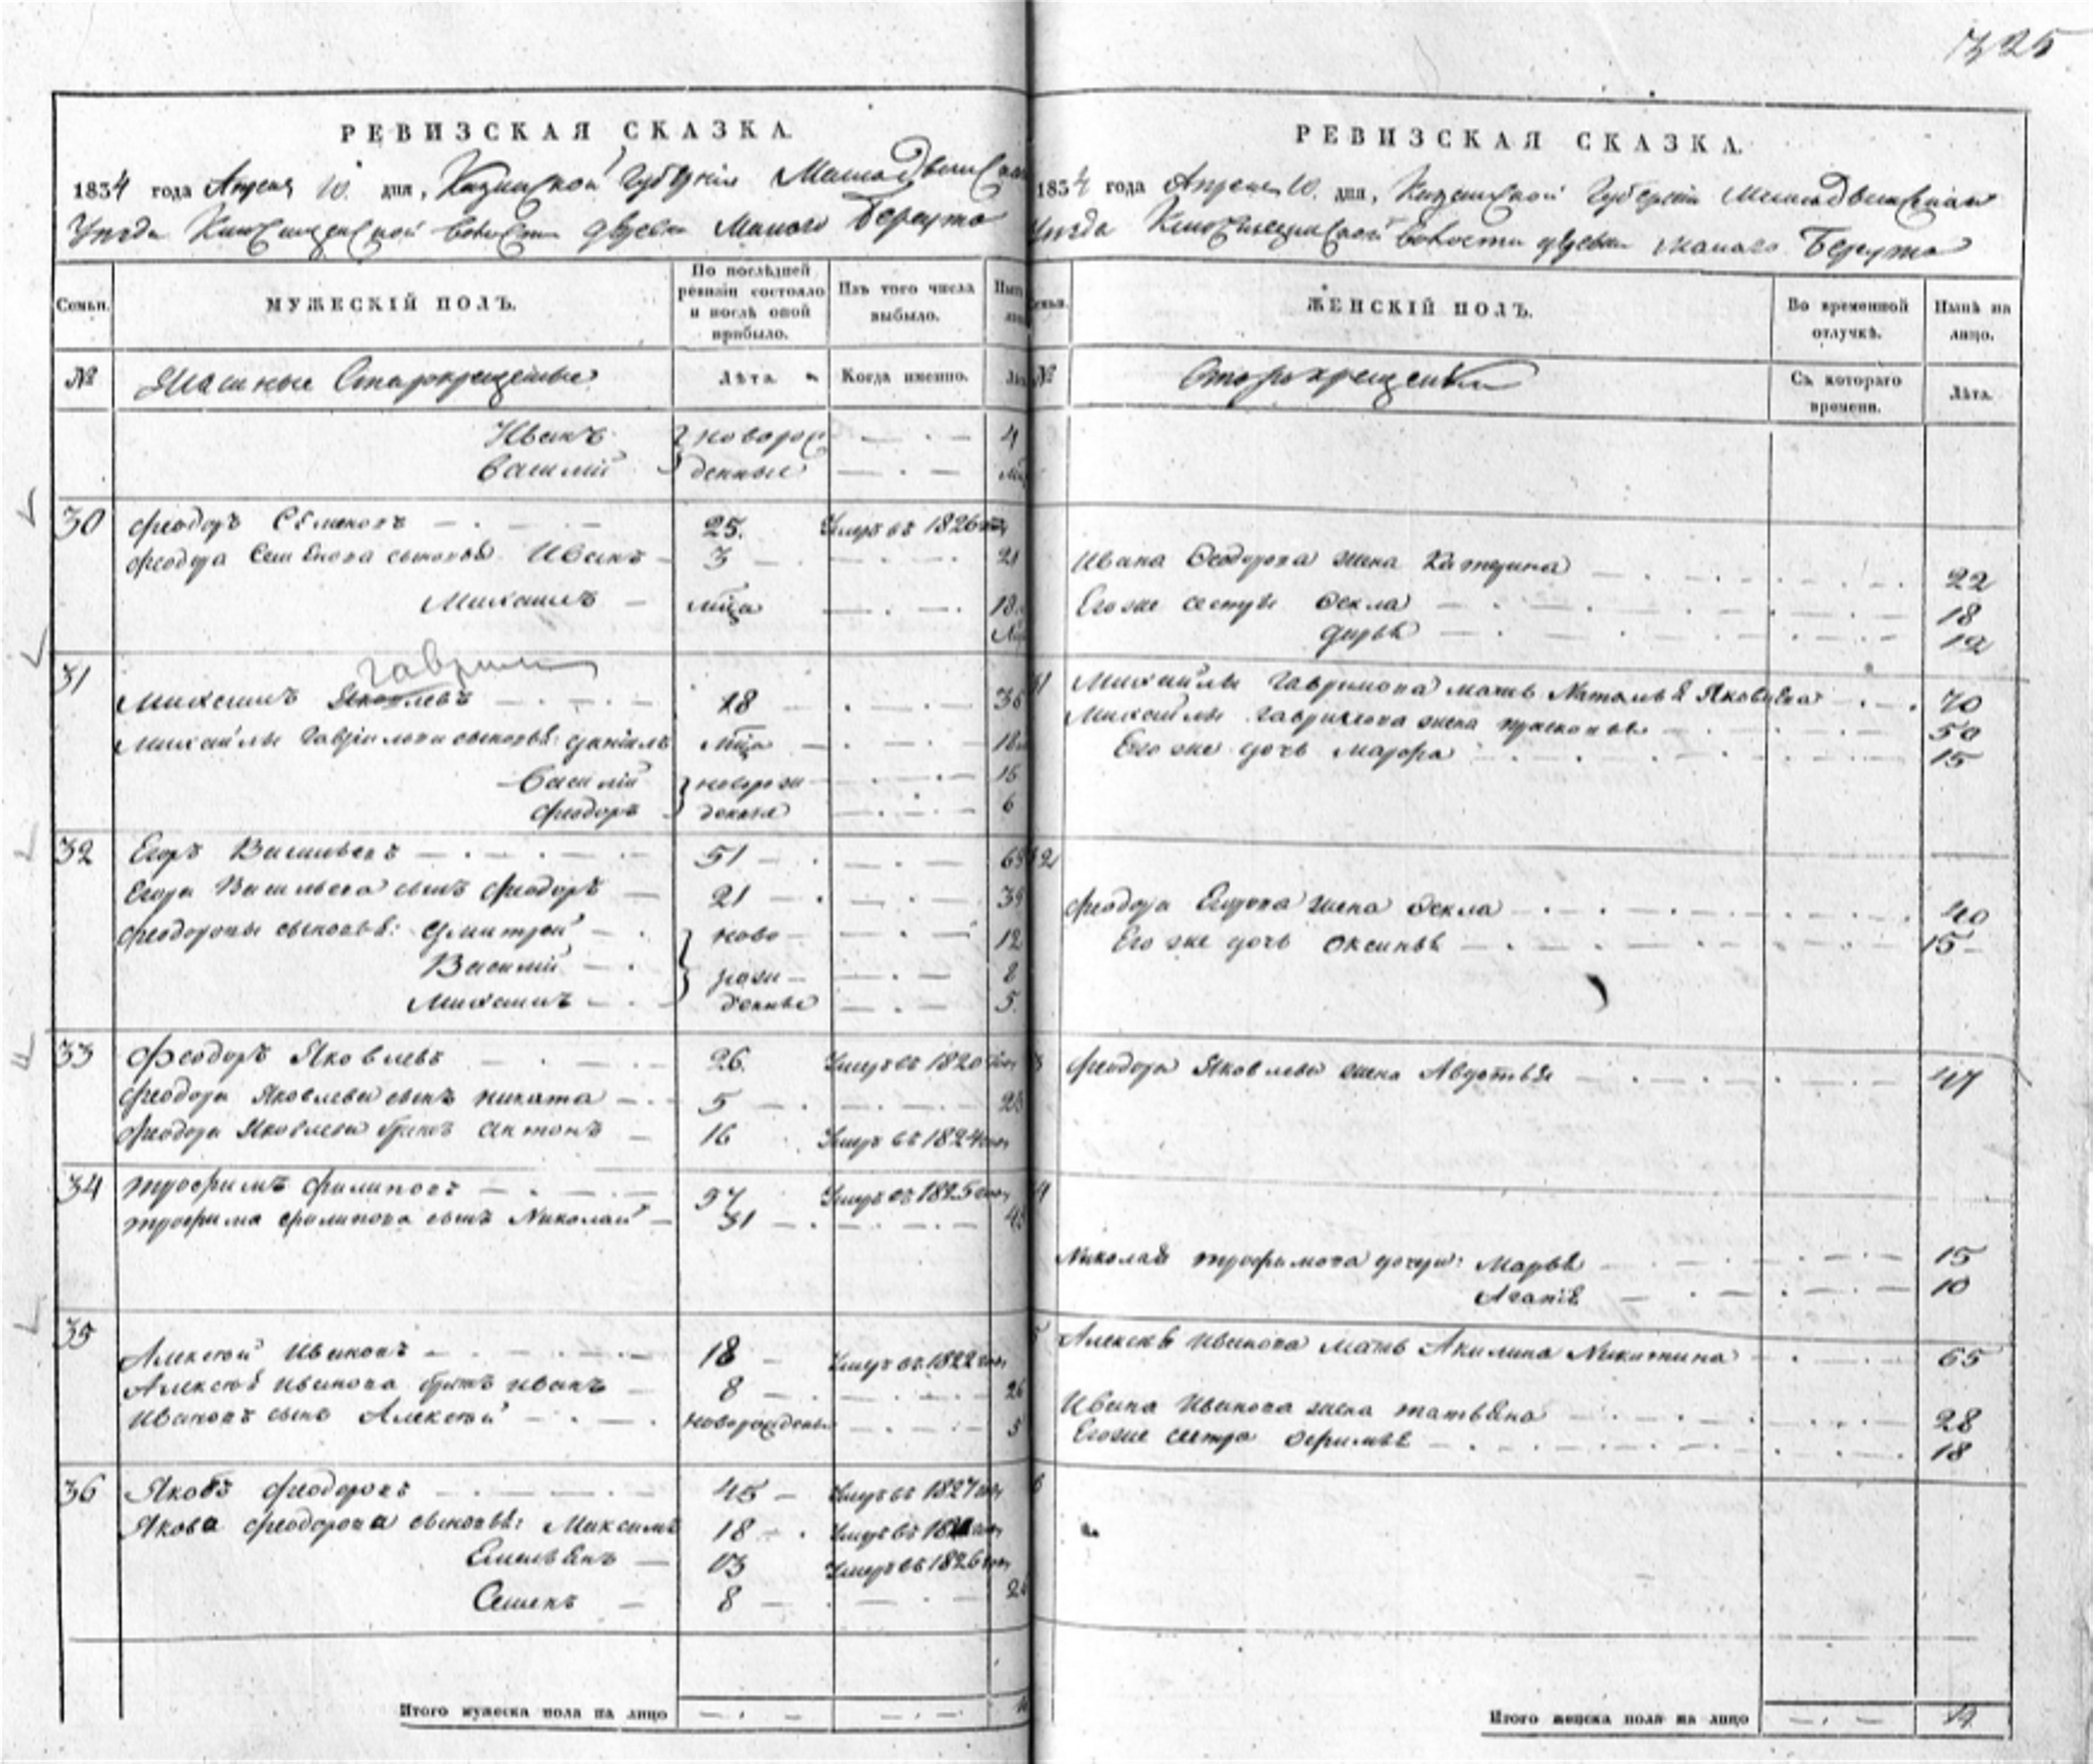 325
РЕВИЗСКАЯ СКАЗКА.
1834 года Апреля 10. дня, Казанской Губернiи
Уезда волости деревни Малого
Семьи.
МУЖЕСКIЙ ПОЛЪ.
По послѣдней ревизiи состояло и послѣ оной прибыло.
Изъ того числа выбыло.
№
Старокрещеные
Лѣта
Когда именно.
Иванъ новорож 4
Василiй денные
30 Феодоръ Семеновъ 25. Умеръ въ 1826
Феодора Семенова сыновья Иванъ 3 21
Михаилъ мѣца 18
31 Гаврилов
Михаилъ Яковлевъ 18 36
Михайлы Гаврилова сыновья: Данiилъ мѣца 18
Василiй новорож 16
Феодоръ денные 6
32 Егоръ Васильевъ 51 69
Егора Васильева сынъ Феодоръ 21 39
Феодоровы сыновья: Дмитрей ново 12
Василiй рож 8
Михаилъ денные 5.
33 Феодоръ Яковлевъ 26. Умеръ въ 1820
Феодора Яковлева сынъ Никита 5 23
Феодора Яковлева братъ Антонъ 16 Умеръ въ 1824
34 Трофимъ Филиповъ 57 Умеръ въ 1825
Трофима Филипова сынъ Николай 31
35 Алексей Ивановъ 18 Умеръ въ 1822
Алексея Иванова братъ Иванъ 8 26
Ивановъ сынъ Алексей новорожденны 5
36 Яковъ Феодоровъ 45 Умеръ въ 1827
Якова Феодорова сыновья: Максимъ 18 Умеръ въ
Емельянъ 13 Умеръ въ 1826
Семенъ 8
Итого мужеска пола на лицо
РЕВИЗСКАЯ СКАЗКА.
1834 года Апреля 10. дня, Казанской Губернiи
Уезда волости деревни Малого
ЖЕНСКIЙ ПОЛЪ.
Во временной отлучкѣ.
Нынѣ на лицо.
№
Старокрещены
Съ котораго времени.
Лѣта.
Ивана Феодорова жена Катерина 22
Его же сестры Фекла 18
Дарья 12
Михайлы Гаврилова мать Наталья Яковлева 70
Михайлы Гаврилова жена Прасковья 50
Его же дочь Марфа 15
Феодора Егорова жена Фекла 40
Его же дочь Оксинья 15
Феодора Яковлева жена Авдотья 47
Николая Трофимова дочери: Марья 15
Агапiя 10
Алексея Иванова мать Акилина Никитина 65
Ивана Иванова жена Татьяна 28
Его же сестра Офимья 18
Итого женска пола на лицо 14